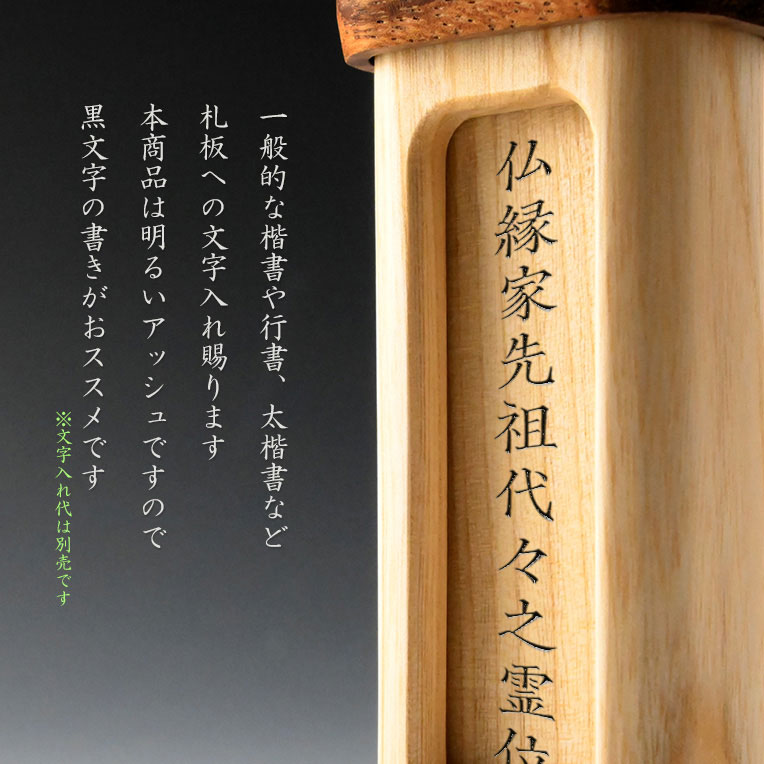 仏縁家先祖代々之霊位
一般的な楷書や行書、太楷書など
札板への文字入れ賜ります
本商品は明るいアッシュですので
黒文字の書きがおススメです
※文字入れ代は別売です